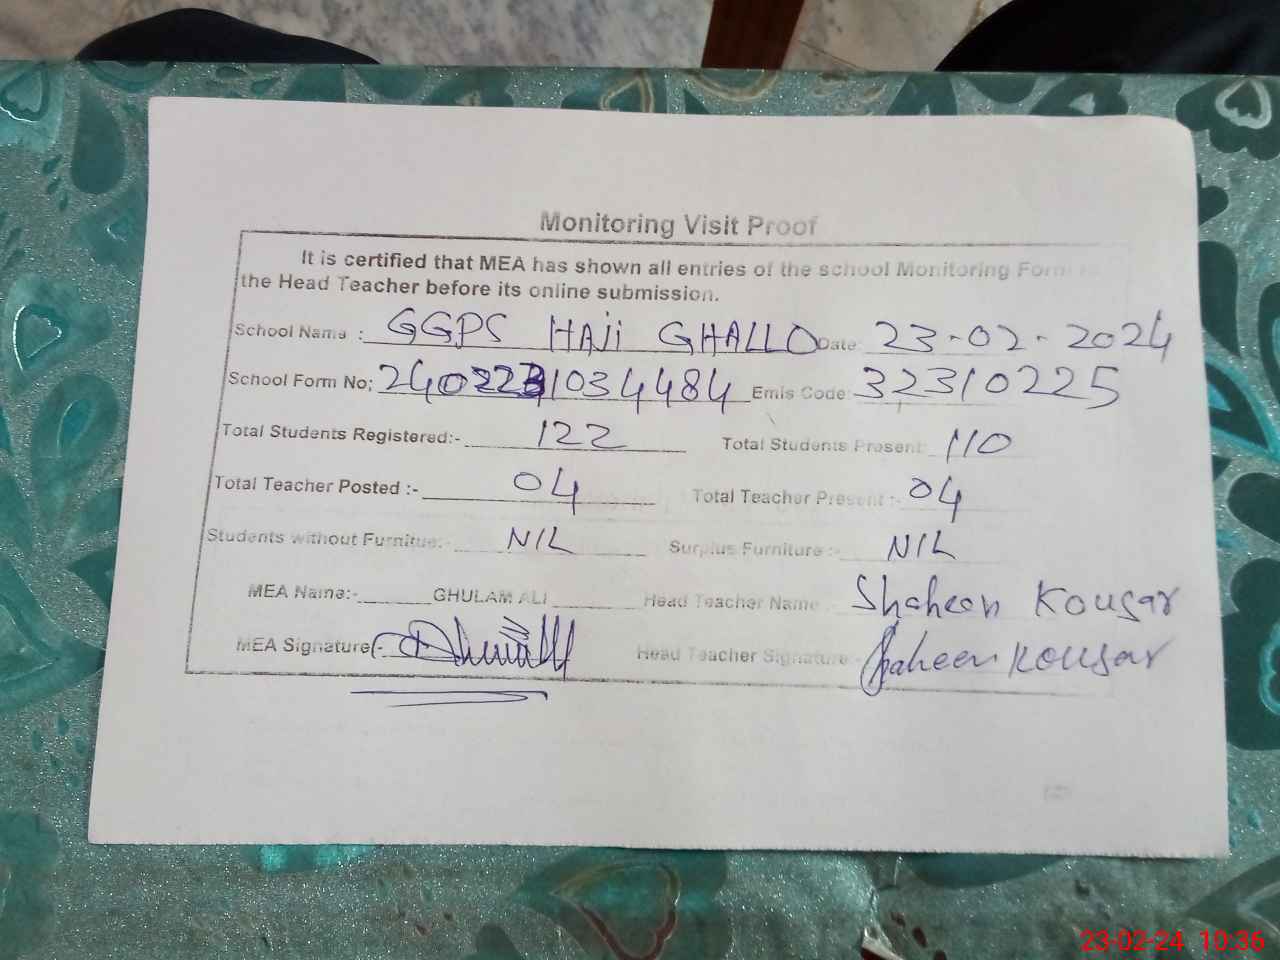 Monitoring Visit Proof
It is certified that MEA has shown all entries of the school Monitoring Form to
the Head Teacher before its online submission.
School Name : GGPS HAJi GHALLO Date: 23-02-2024
School Form No: 2402231034484 Emis Code: 32310225
Total Students Registered:- 122 Total Students Present: 110
Total Teacher Posted :- 04 Total Teacher Present :- 04
Students without Furnitue:- NIL Surplus Furniture :- NIL
MEA Name:- GHULAM ALI Head Teacher Name : Shaheen Kousar
MEA Signature:- Head Teacher Signature:- Shaheen Kousar
23-02-24 10:36